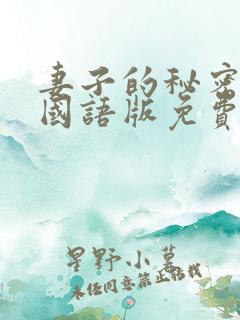 妻子的秘密
國語版免費
星野小慕
未经同意禁止转载